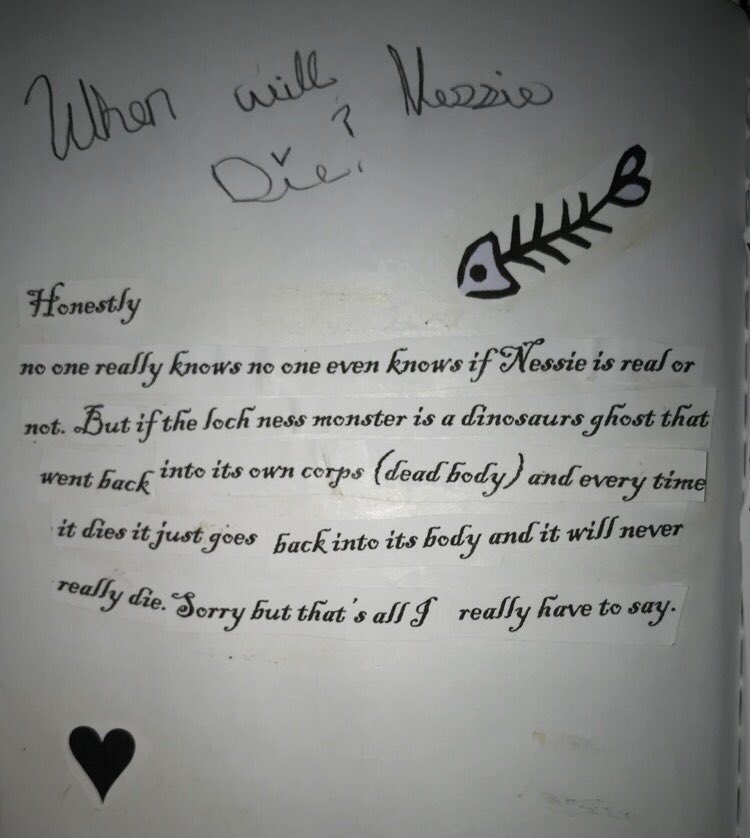 When will Nessie
Die?
Honestly
no one really knows no one even knows if Nessie is real or
not. But if the loch ness monster is a dinosaurs ghost that
went back into its own corps (dead body) and every time
it dies it just goes back into its body and it will never
really die. Sorry but that's all I really have to say.